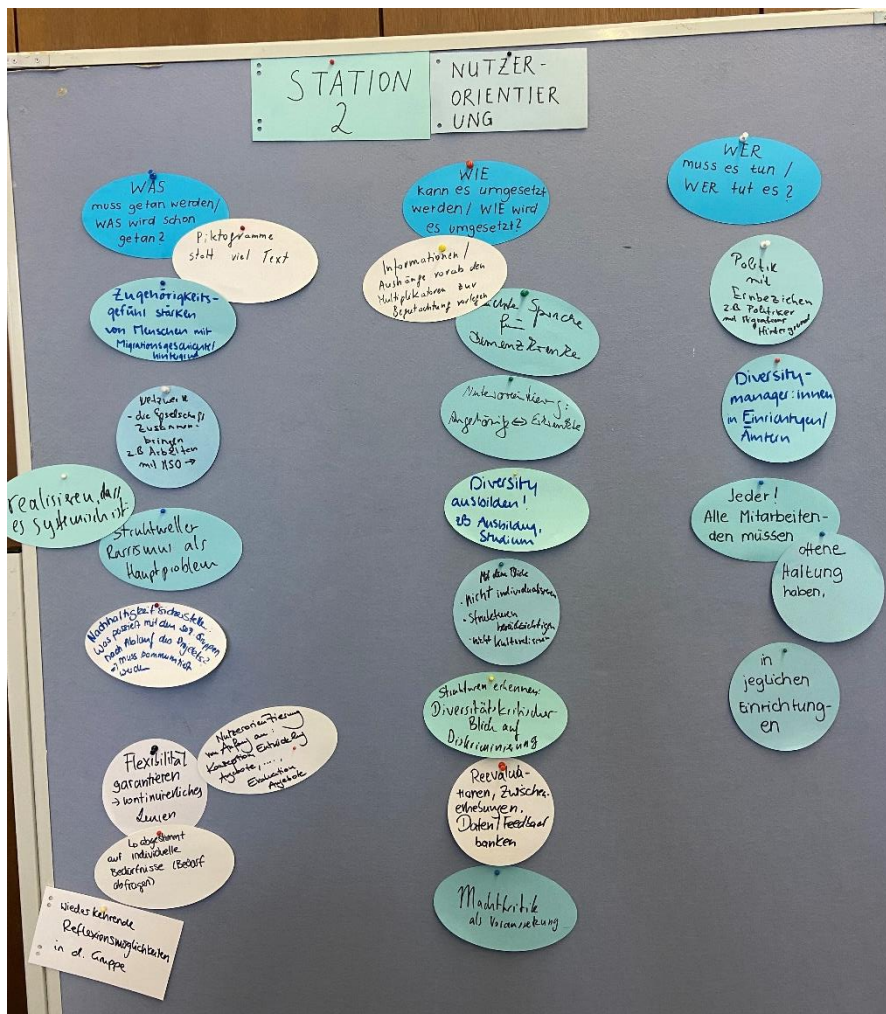 STATION
2
NUTZER-
ORIENTIER
UNG
WAS
muss getan werden/
WAS wird schon
getan?
Piktogramme
statt viel Text
Zugehörigkeits-
gefühl stärken
von Menschen mit
Migrationsgeschichte/
hintergrund
Netzwerk
- die Gesellschaft
zusammen-
bringen
z.B Arbeiten
mit MSO →
realisieren, dass
es systemisch ist
Struktureller
Rassismus als
Hauptproblem
Nachhaltigkeit sicherstellen:
Was passiert mit den sog. Gruppen
nach Ablauf des Projekts?
→ muss kommuniziert
werden
Nutzerorientierung
von Anfang an:
Konzeption, Entwicklung
Angebote, ...,
Evaluation
Angebote
Flexibilität
garantieren
→ kontinuierliches
Lernen
↳ abgestimmt
auf individuelle
Bedürfnisse (Bedarf
abfragen)
wiederkehrende
Reflexionsmöglichkeiten
in d. Gruppe
WIE
kann es umgesetzt
werden/ WIE wird
es umgesetzt?
Informationen/
Aushänge vorab den
Multiplikatoren zur
Begutachtung vorlegen
Sprache
für
Demenzkranke
Nutzerorientierung:
Angehörige ⇔ Erkrankte
Diversity
ausbilden!
zB Ausbildung,
Studium
Mit dem Blick
- nicht individualisieren
- Strukturen
berücksichtigen
- nicht kulturalisieren
Strukturen erkennen:
Diversitätskritischer
Blick auf
Diskriminierung
Reevalua-
tionen, Zwischen-
erhebungen,
Daten/Feedback
banken
Machtkritik
als Voraussetzung
WER
muss es tun /
WER tut es?
Politik
mit
Einbeziehen
z.B Politiker
mit Migrations
Hintergrund
Diversity-
manager:innen
in Einrichtungen/
Ämtern
Jeder!
Alle Mitarbeiten-
den müssen
offene
Haltung
haben,
in
jeglichen
Einrichtung-
en